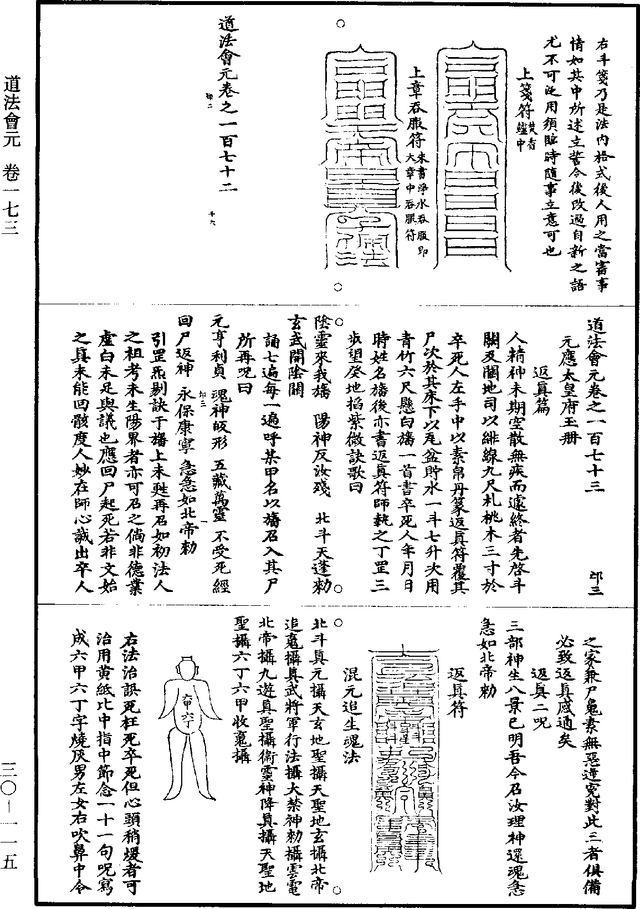 右斗箋乃是法內格式後人用之當審事
情如其中所述立誓令後改過自新之語
尤不可泛用須臨時隨事立意可也
上箋符
上章吞服符
朱書淨水吞服即
大章中吞服符
道法會元卷之一百七十二
道法會元 卷一七三
三〇—一一五
道法會元卷之一百七十三
元應太皇府玉冊
返真篇
人精神未期空散無疾而遽終者先啓斗
關及闔地司以緋線九尺札桃木三寸於
卒死人左手中以素帛丹篆返真符覆其
尸次於其床下以瓦盆貯水一斗七升次用
青竹六尺懸白旛一首書卒死人年月日
時姓名旛後亦書返真符師執之丁罡三
步望癸地掐紫微訣歌曰
陰靈來我旛 陽神反汝殘 北斗天蓬勑
玄武開陰關
誦七遍每一遍呼某甲名以旛召入其尸
所再呪曰
元亨利貞 魂神皈形 五藏萬靈 不受死經
回尸返神 永保康寧 急急如北帝勑
引罡炁剔訣于旛上未甦再召如初法人
之祖考未生陽界者亦可召之倘非德業
虛白未足與議也應回尸起死若非文始
之真未能回骸度人妙在師心誠出卒人
之家兼尸鬼素無惡逆冤對此三者俱備
必致返真感通矣
返真二呪
三部神生八景已明吾今召汝理神還魂急
急如北帝勑
返真符
混元追生魂法
北斗真元攝天玄地聖攝天聖地玄攝北帝
追鬼攝真武將軍行法攝大禁神勑攝雲電
北帝攝九遊真聖攝衛靈神降真攝天聖地
聖攝六丁六甲收鬼攝
右法治誤死枉死卒死但心頭稍煖者可
治用黃紙比中指中節念一十一句呪寫
成六甲六丁字燒灰男左女右吹鼻中令